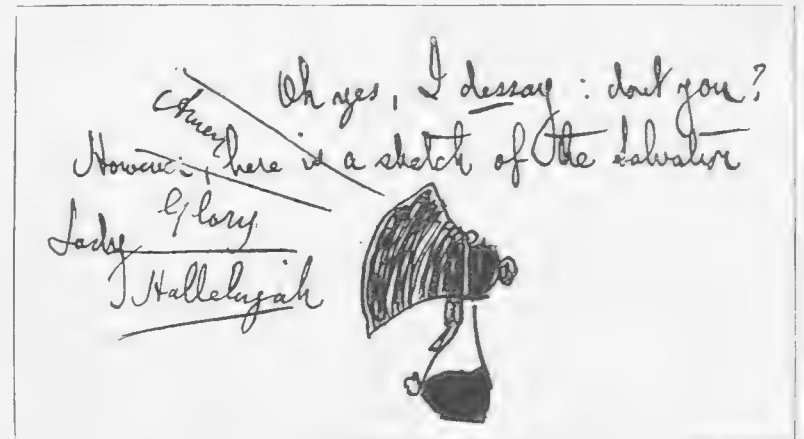 Oh yes, I dessay : dont you?
Amen
However, here is a sketch of the Salvation
Glory
Lady
Hallelujah